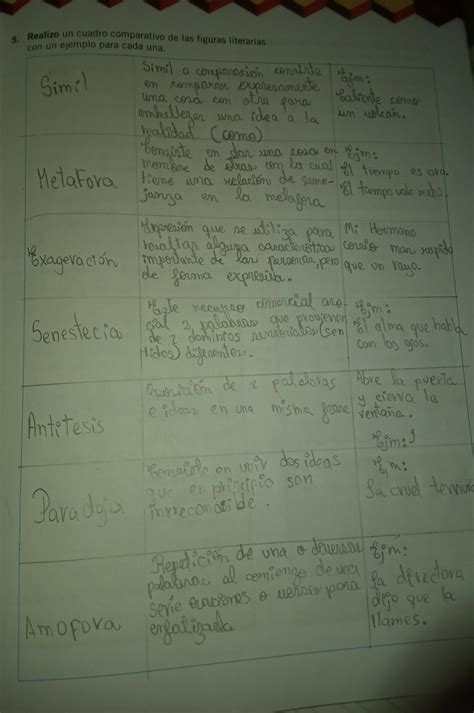 5. Realizo un cuadro comparativo de las figuras literarias
con un ejemplo para cada una.
Simíl
Simíl o comparación consiste
en comparar expresamente
una cosa con otra para
embellezer una idea a la
realidad (como)
Ejm:
Caliente como
un volcán.
Metafora
Consiste en dar una cosa en
nombre de otras con la cual
tiene una relación de seme-
janza en la metafora
Ejm:
El tiempo es oro.
El tiempo vale
Exageración
Expresión que se utiliza para
resaltar alguna característica
importante de las personas, pero
de forma
Mi Hermano
corrio mas rapido
que un rayo.
Senestecia
Este recurso comercial aso-
cia 2 palabras que provienen
de 2 dominios (sen
tidos) diferentes.
Ejm:
El alma que habla
con los ojos.
Antetesis
Oposición de 2 palabras
e ideas en una misma frase
Abre la puerta
y cierra la
ventana.
Ejm:
Paradoja
Consiste en unir dos ideas
que en principio son
Ejm:
La cruel ternura
Amofora
Repetición de una o
palabras al comienzo de una
serie oraciones o para
Ejm:
La directora
dijo que la
llames.